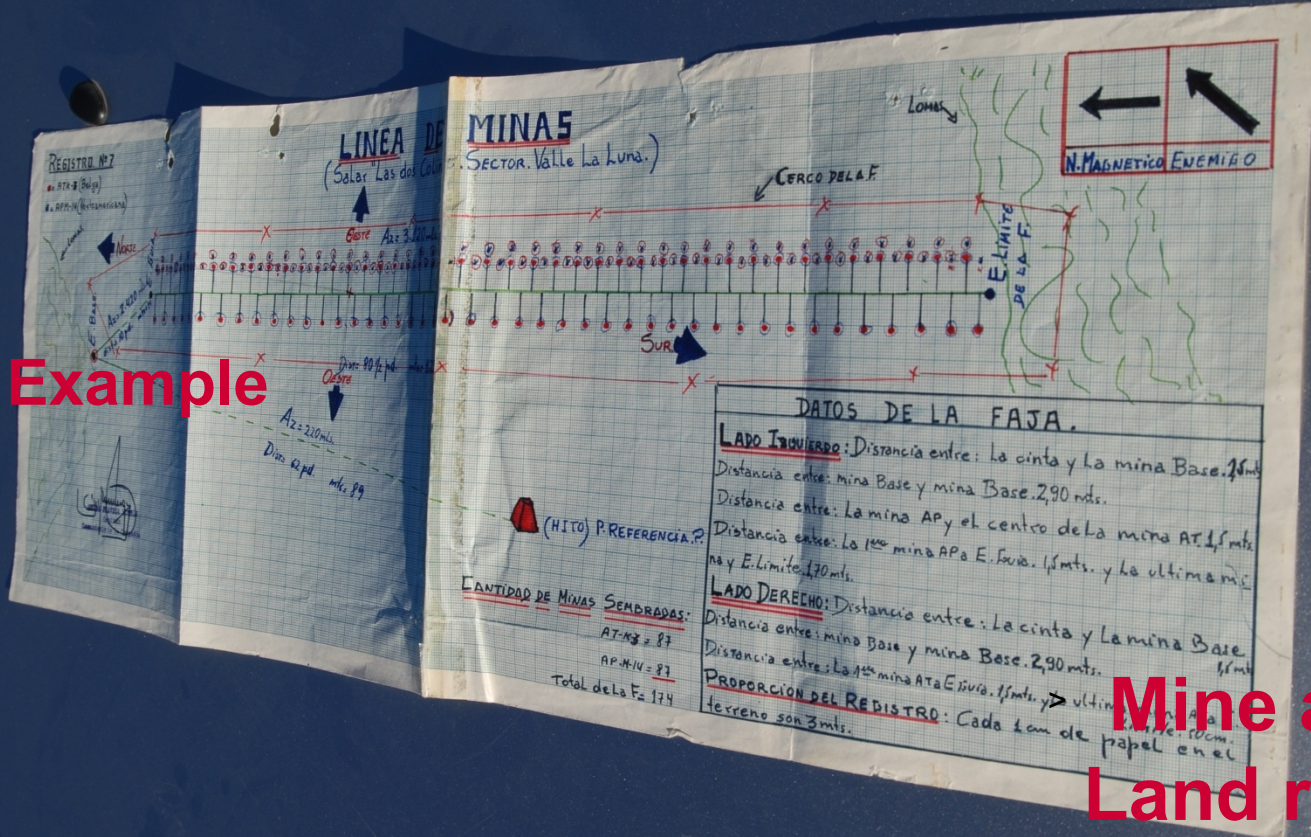 REGISTRO Nº7
ATK-3 (Belga)
APM-14 (Norteamericana)
LINEA DE MINAS
(Salar "Las dos
. SECTOR. Valle La Luna.)
LOMAS
N.MAGNETICO
ENEMIGO
CERCO DE LA F.
NORTE
OESTE
E. LIMITE
DE LA F.
E. Base
SUR
OESTE
AZ=220mts.
Dist= 62 pd. mts. 89
(HITO) P. REFERENCIA.?
CANTIDAD DE MINAS SEMBRADAS:
AT-K3 = 87
AP.M-14 = 87
Total de la F = 174
DATOS DE LA FAJA.
LADO IZQUIERDO: Distancia entre: La cinta y La mina Base.
Distancia entre: mina Base y mina Base. 2,90 mts.
Distancia entre: La mina AP y el centro de La mina AT. 1,5 mts.
Distancia entre: La 1era mina AP a E. Guia. 1,5mts. y La ultima mi
na y E. Limite. 1,70 mts.
LADO DERECHO: Distancia entre: La cinta y La mina Base
1,5 mts
Distancia entre: mina Base y mina Base. 2,90 mts.
Distancia entre: La 1era mina AT a E. Guia. 1,5mts. y > ultim
50cm.
PROPORCION DEL REGISTRO: Cada 1cm de papel en el
terreno son 3 mts.
Example
Mine a
Land r